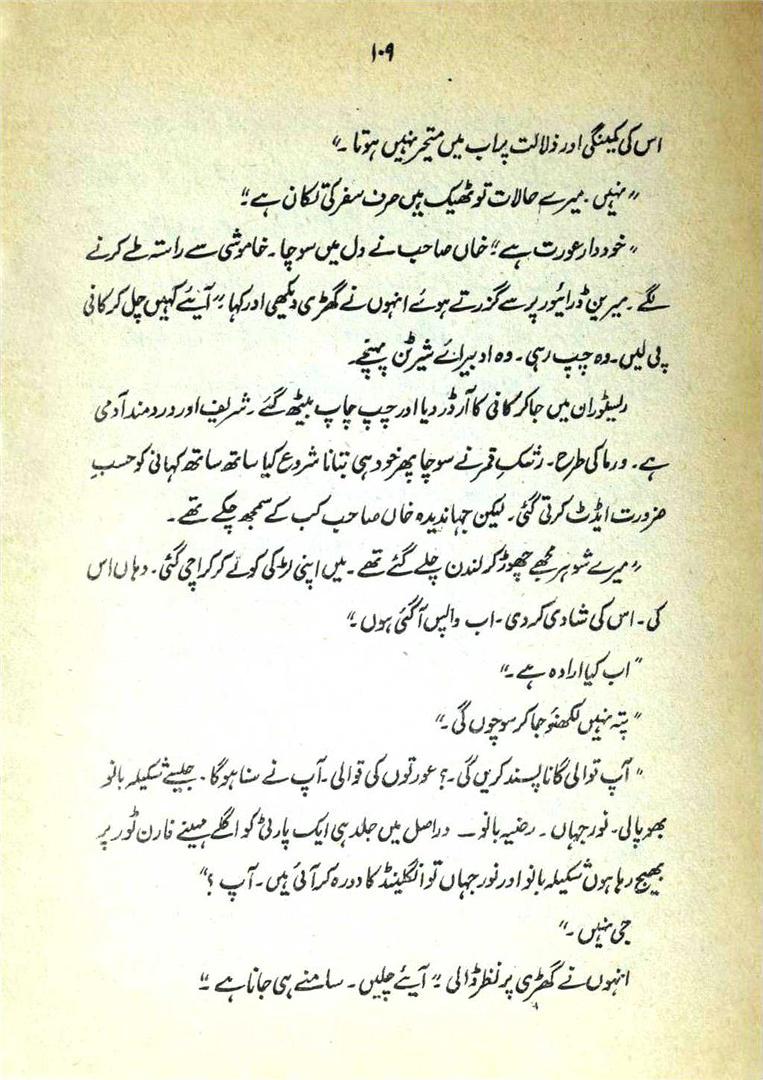 ۱۰۹
اس کی کمینگی اور ذلالت پر اب میں متحیر نہیں ہوتا۔"
"نہیں۔ میرے حالات تو ٹھیک ہیں صرف سفر کی تکان ہے"
"خود دار عورت ہے" خاں صاحب نے دل میں سوچا۔ خاموشی سے راستہ طے کرنے
لگے۔ میرین ڈرائیور پر سے گزرتے ہوئے انہوں نے گھڑی دیکھی اور کہا۔ "آیئے کہیں چل کر کافی
پی لیں۔ وہ چپ رہی۔ وہ اوبیرائے شیرٹن پہنچے۔
ریسٹوران میں جا کر کافی کا آرڈر دیا اور چپ چاپ بیٹھ گئے۔ شریف اور درد مند آدمی
ہے۔ ورما کی طرح۔ رشکِ قمر نے سوچا پھر خود ہی بتانا شروع کیا ساتھ ساتھ کہانی کو حسبِ
ضرورت ایڈٹ کرتی گئی۔ لیکن جہاندیدہ خاں صاحب کب کے سمجھ چکے تھے۔
"میرے شوہر مجھے چھوڑ کر لندن چلے گئے تھے۔ میں اپنی لڑکی کو لے کر کراچی گئی۔ وہاں اس
کی۔ اس کی شادی کر دی۔ اب واپس آ گئی ہوں۔"
"اب کیا ارادہ ہے۔"
"پتہ نہیں لکھنؤ جا کر سوچوں گی۔"
"آپ قوالی گانا پسند کریں گی۔؟ عورتوں کی قوالی۔ آپ نے سنا ہوگا۔ جیسے شکیلہ بانو
بھوپالی۔ نور جہاں۔ رضیہ بانو — دراصل میں جلد ہی ایک پارٹی کو اگلے مہینے فارن ٹور پر
بھیج رہا ہوں شکیلہ بانو اور نور جہاں تو انگلینڈ کا دورہ کر آئی ہیں۔ آپ ؟"
جی نہیں۔"
انہوں نے گھڑی پر نظر ڈالی۔ "آیئے چلیں۔ سامنے ہی جانا ہے۔"